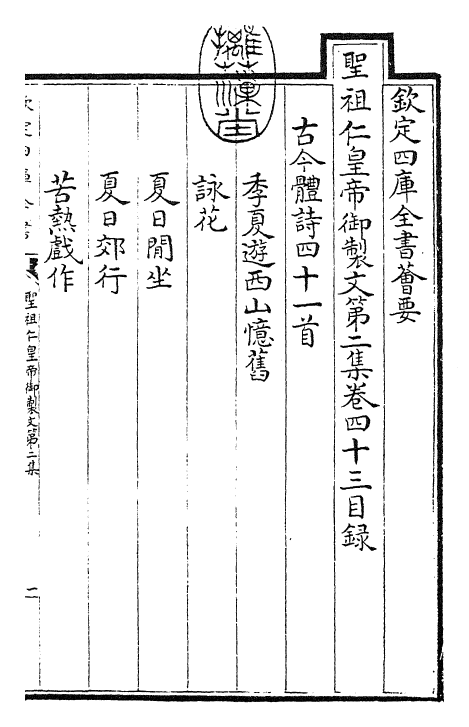 欽定四庫全書薈要
聖祖仁皇帝御製文第二集卷四十三目錄
古今體詩四十一首
季夏遊西山憶舊
詠花
夏日閒坐
夏日郊行
苦熱戲作
欽定四庫全書
聖祖仁皇帝御製文第二集
一